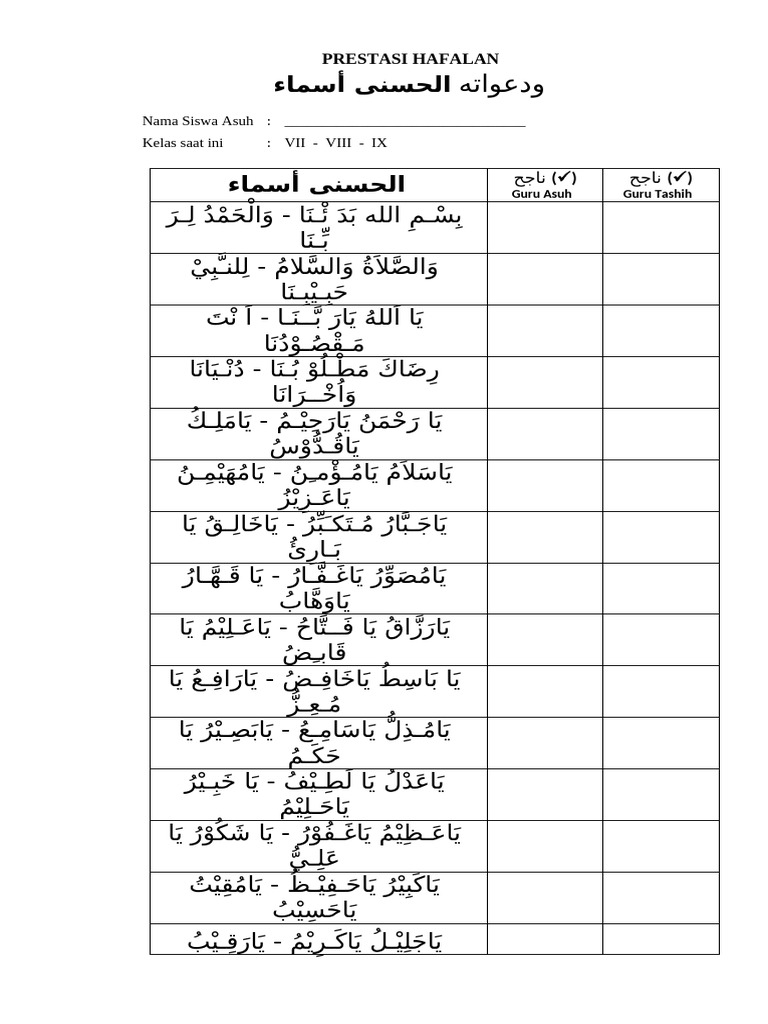 PRESTASI HAFALAN
ودعواته الحسنى أسماء
Nama Siswa Asuh : ________________________________
Kelas saat ini : VII - VIII - IX
الحسنى أسماء
ناجح (✓)
Guru Asuh
ناجح (✓)
Guru Tashih
بِسْـمِ الله بَدَ نْـنَا - وَالْحَمْدُ لِـرَ
بِّـنَا
وَالصَّلاَةُ وَالسَّلامُ - لِلنـَّبِيْ
حَبِـيْبِـنَا
يَا اَللهُ يَارَ بَّــنَـا - اَ نْتَ
مَـقْصُـوْدُنَا
رِضَاكَ مَطْـلُوْ بُـنَا - دُنْـيَانَا
وَاُخْــرَانَا
يَا رَحْمَنُ يَارَحِيْـمُ - يَامَلِـكُ
يَاقُـدُّوْسُ
يَاسَلاَمُ يَامُـؤْمـِنُ - يَامُهَيْمِـنُ
يَاعَـزِيْزُ
يَاجَـبَّارُ مُـتَكـَبِّرُ - يَاخَالِـقُ يَا
بَـارِئُ
يَامُصَوِّرُ يَاغَـفَّـارُ - يَا قَـهَّـارُ
يَاوَهَّابُ
يَارَزَّاقُ يَا فَــتَّاحُ - يَاعَـلِيْمُ يَا
قَابـِضُ
يَا بَاسِطُ يَاخَافِـضُ - يَارَافِـعُ يَا
مُـعِـزُّ
يَامُـذِلُّ يَاسَامِـعُ - يَابَصِـيْرُ يَا
حَكَـمُ
يَاعَدْلُ يَا لَطِـيْفُ - يَا خَبِـيْرُ
يَاحَـلِيْمُ
يَاعَـظِيْمُ يَاغَـفُوْرُ - يَا شَكُوْرُ يَا
عَلِـيُّ
يَاكَبِيْرُ يَاحَـفِيْـظُ - يَامُقِيْتُ
يَاحَسِيْبُ
يَاجَلِيْـلُ يَاكَـرِيْمُ - يَارَقِـيْبُ